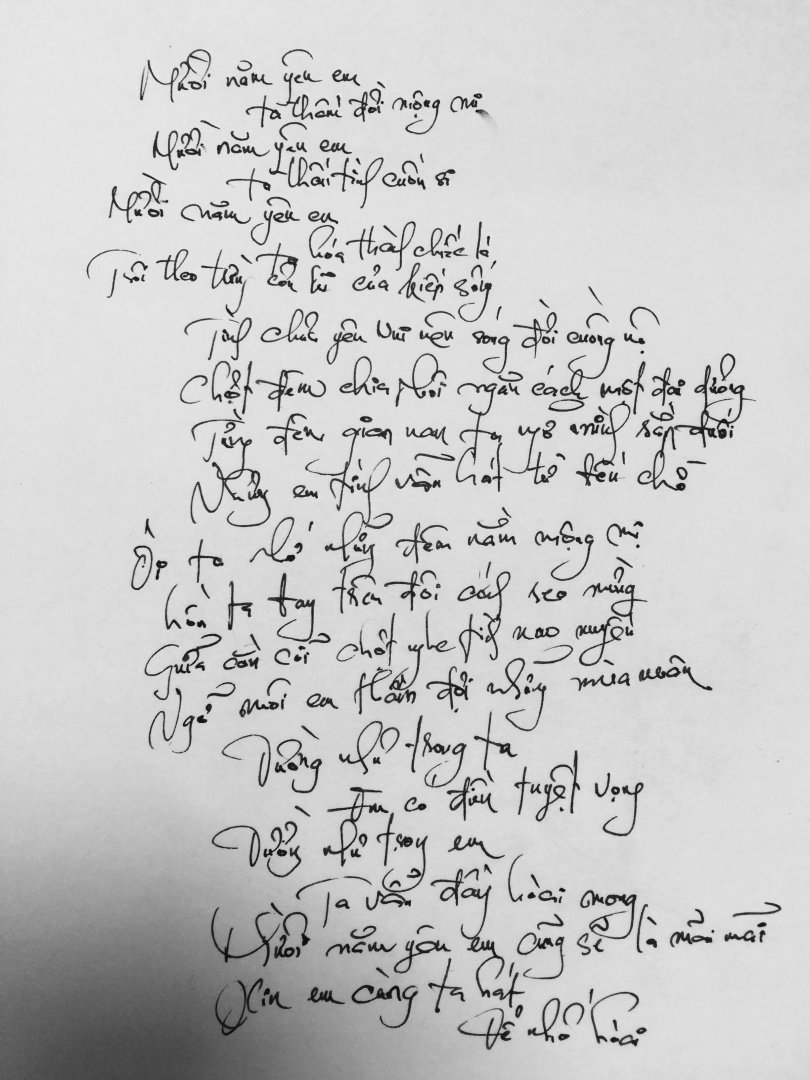 Mười năm yêu em
ta thấm đời mộng mị
Mười năm yêu em
ta thấy tình cuồng si
Mười năm yêu em
ta hóa thành chiếc lá
Trôi theo từng cơn lũ của kiếp sống
Tình chưa yên vui nên sóng đời cuồng nộ
Chợt đêm chia phôi ngăn cách một đại dương
Từng đêm gian nan ta ngỡ mình sắp đuối
Nhưng em tình vẫn hát từ bến chờ
Ôi ta nhớ những đêm nằm mộng mị
hồn ta bay trên đôi cánh reo mừng
Giữa cằn cỗi chợt nghe tình nao nuyến
Ngỡ môi em thắm đợi những mùa xuân
Dường như trong ta
Âm co điều tuyệt vọng
Dường như trong em
Ta vẫn đầy hoài mong
Mười năm yêu em cũng sẽ là mãi mãi
Xin em cùng ta hát
Để nhớ hoài